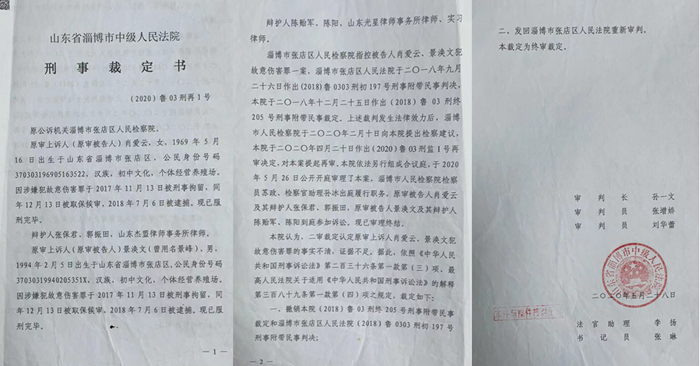 山东省淄博市中级人民法院
刑事裁定书
（2020）鲁03刑再1号
原公诉机关淄博市张店区人民检察院。
原审上诉人（原审被告人）肖爱云，女，1969年5月
16日出生于山东省淄博市张店区，公民身份号码
370303196905163522，汉族，初中文化，个体经营养殖场。
因涉嫌犯故意伤害罪于2017年11月13日被刑事拘留，同
年12月13日被取保候审，2018年7月6日被逮捕，现已服
刑完毕。
辩护人张保君、郭振田，山东杰盟律师事务所律师。
原审上诉人（原审被告人）景涣文（曾用名景峰），男，
1994年2月5日出生于山东省淄博市张店区，公民身份号码
37030319940205351X，汉族，初中文化，个体经营养殖场。
因涉嫌犯故意伤害罪于2017年11月13日被刑事拘留，同
年12月13日被取保候审，2018年7月6日被逮捕，现已服
刑完毕。
—1—
辩护人陈贻军、陈阳，山东光星律师事务所律师、实习
律师。
淄博市张店区人民检察院指控被告人肖爱云、景涣文犯
故意伤害罪一案，淄博市张店区人民法院于二〇一八年九月
二十六日作出(2018)鲁0303刑初197号刑事附带民事判决，
本院于二〇一八年十二月二十五日作出(2018)鲁03刑终
205号刑事附带民事裁定。上述裁判发生法律效力后，淄博
市人民检察院于二〇二〇年二月十日向本院提出检察建议，
本院于二〇二〇年四月二十日作出(2020)鲁03刑监1号再
审决定，对本案提起再审。本院依法另行组成合议庭，于2020
年5月26日公开开庭审理了本案。淄博市人民检察院检察
员苏政、检察官助理孙冰出庭履行职务，原审被告人肖爱云
及其辩护人张保君、郭振田，原审被告人景涣文及其辩护人
陈贻军、陈阳到庭参加诉讼。现已审理终结。
本院认为，二审裁定认定原审上诉人肖爱云、景涣文犯
故意伤害罪的事实不清，证据不足。据此，依照《中华人民
共和国刑事诉讼法》第二百三十六条第一款第（三）项、最
高人民法院关于适用《中华人民共和国刑事诉讼法》的解释
第三百八十九条第一款第（四）项之规定，裁定如下：
一、撤销本院（2018）鲁03刑终205号刑事附带民事
裁定和淄博市张店区人民法院（2018）鲁0303刑初197号
刑事附带民事判决；
—2—
二、发回淄博市张店区人民法院重新审判。
本裁定为终审裁定。
审判长 孙一文
审判员 张增娇
审判员 刘华蕾
山东省淄博市中级人民法院
二〇二〇年五月二十八日
法官助理 李扬
书记员 张琳